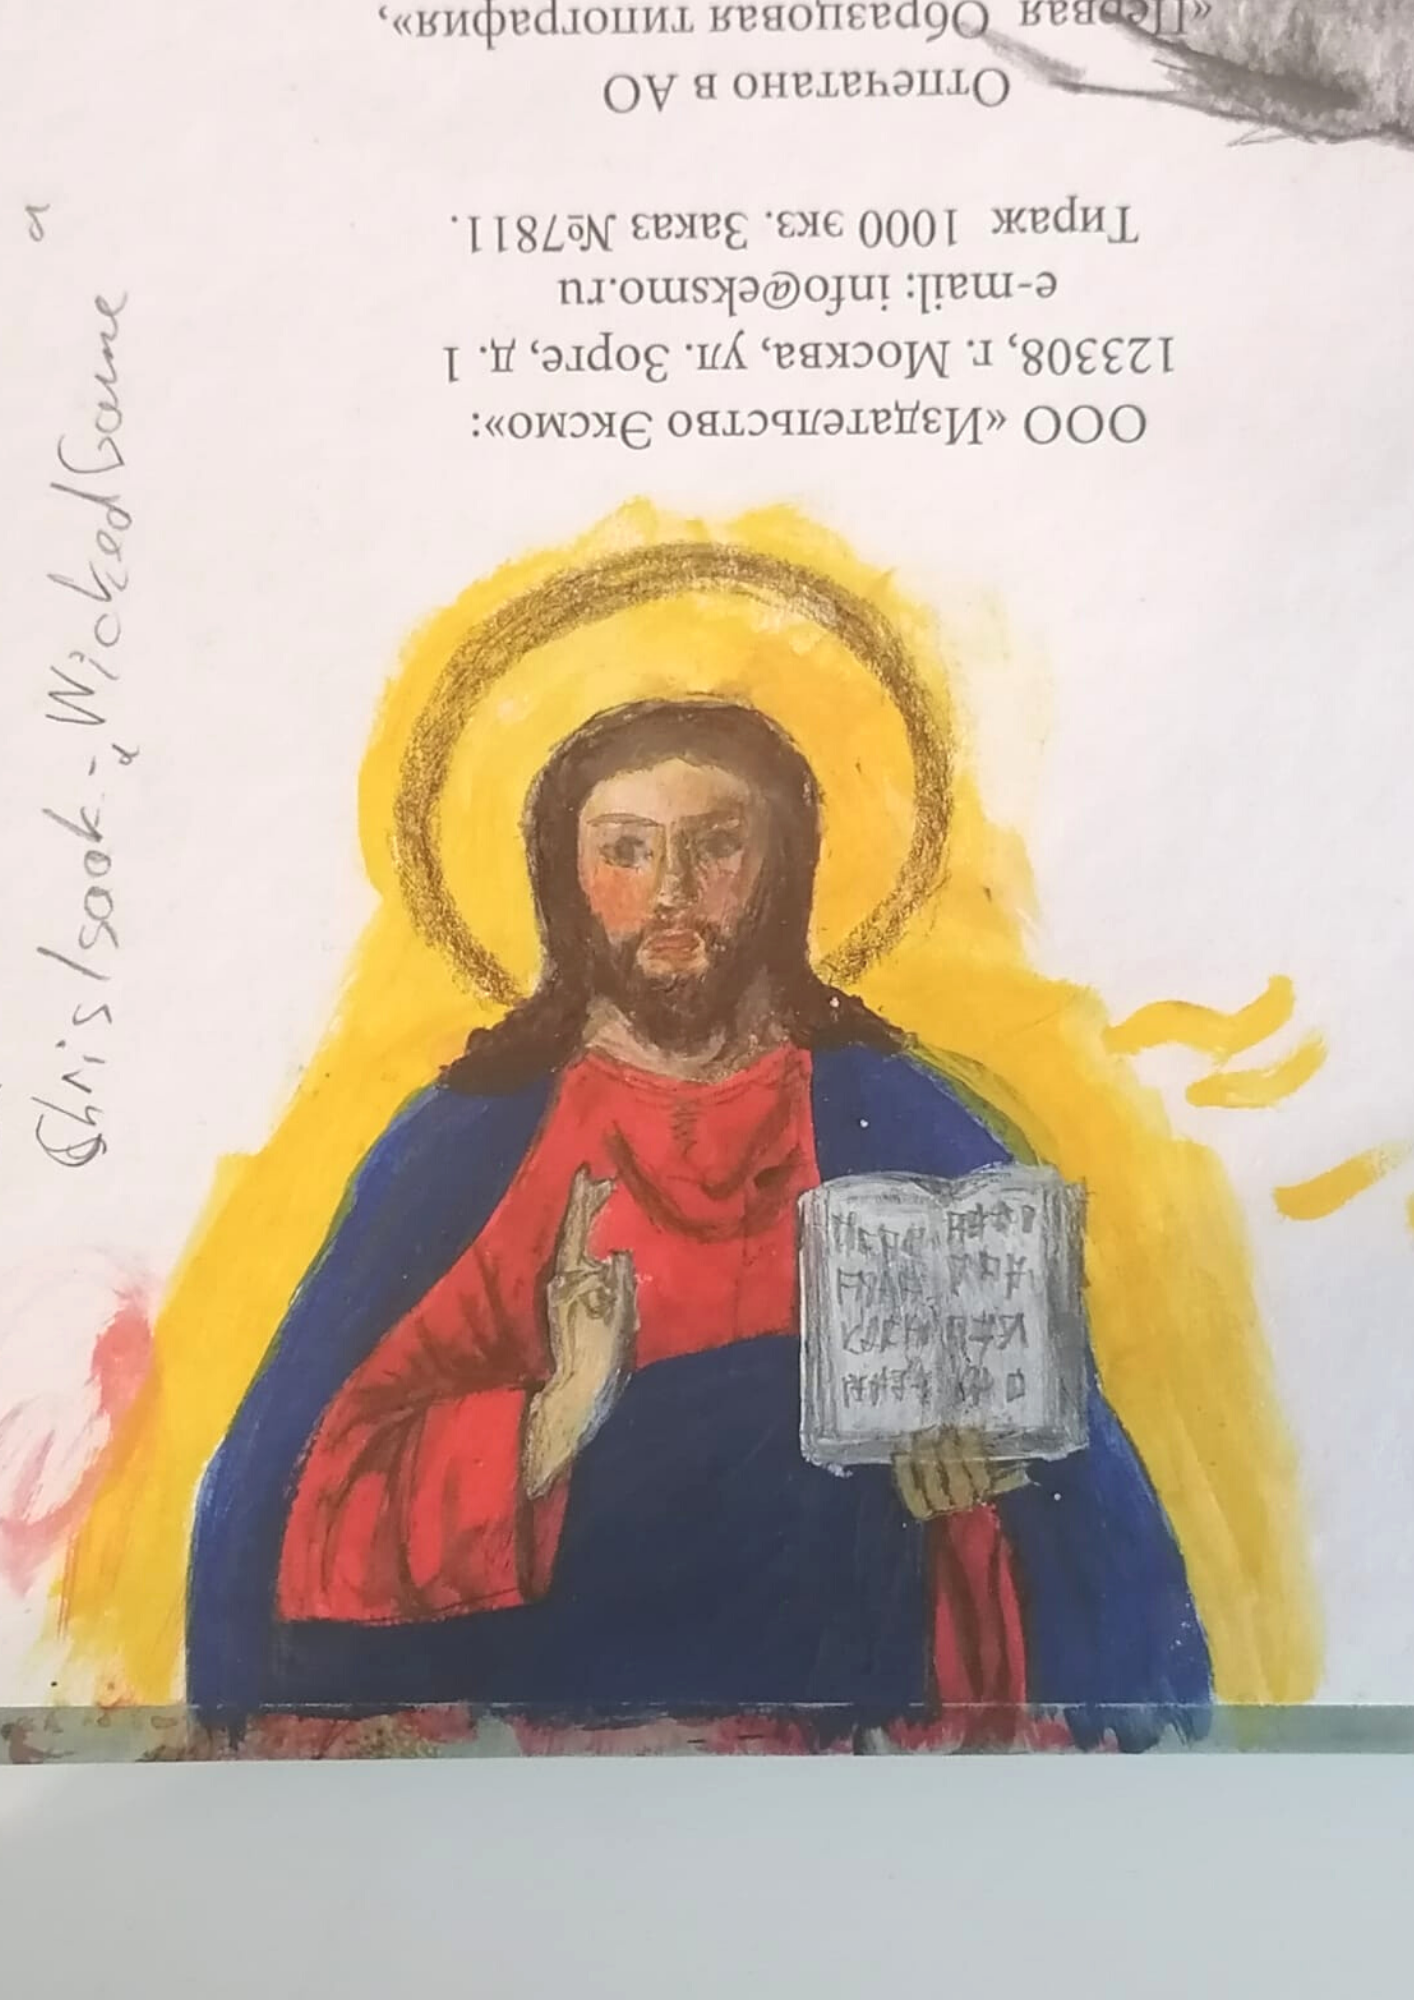 ООО «Издательство Эксмо»:
123308, г. Москва, ул. Зорге, д. 1
e-mail: info@eksmo.ru
Тираж 1000 экз. Заказ №7811.
Отпечатано в АО
«Первая Образцовая типография»,
Chris Isaak - Wicked Game